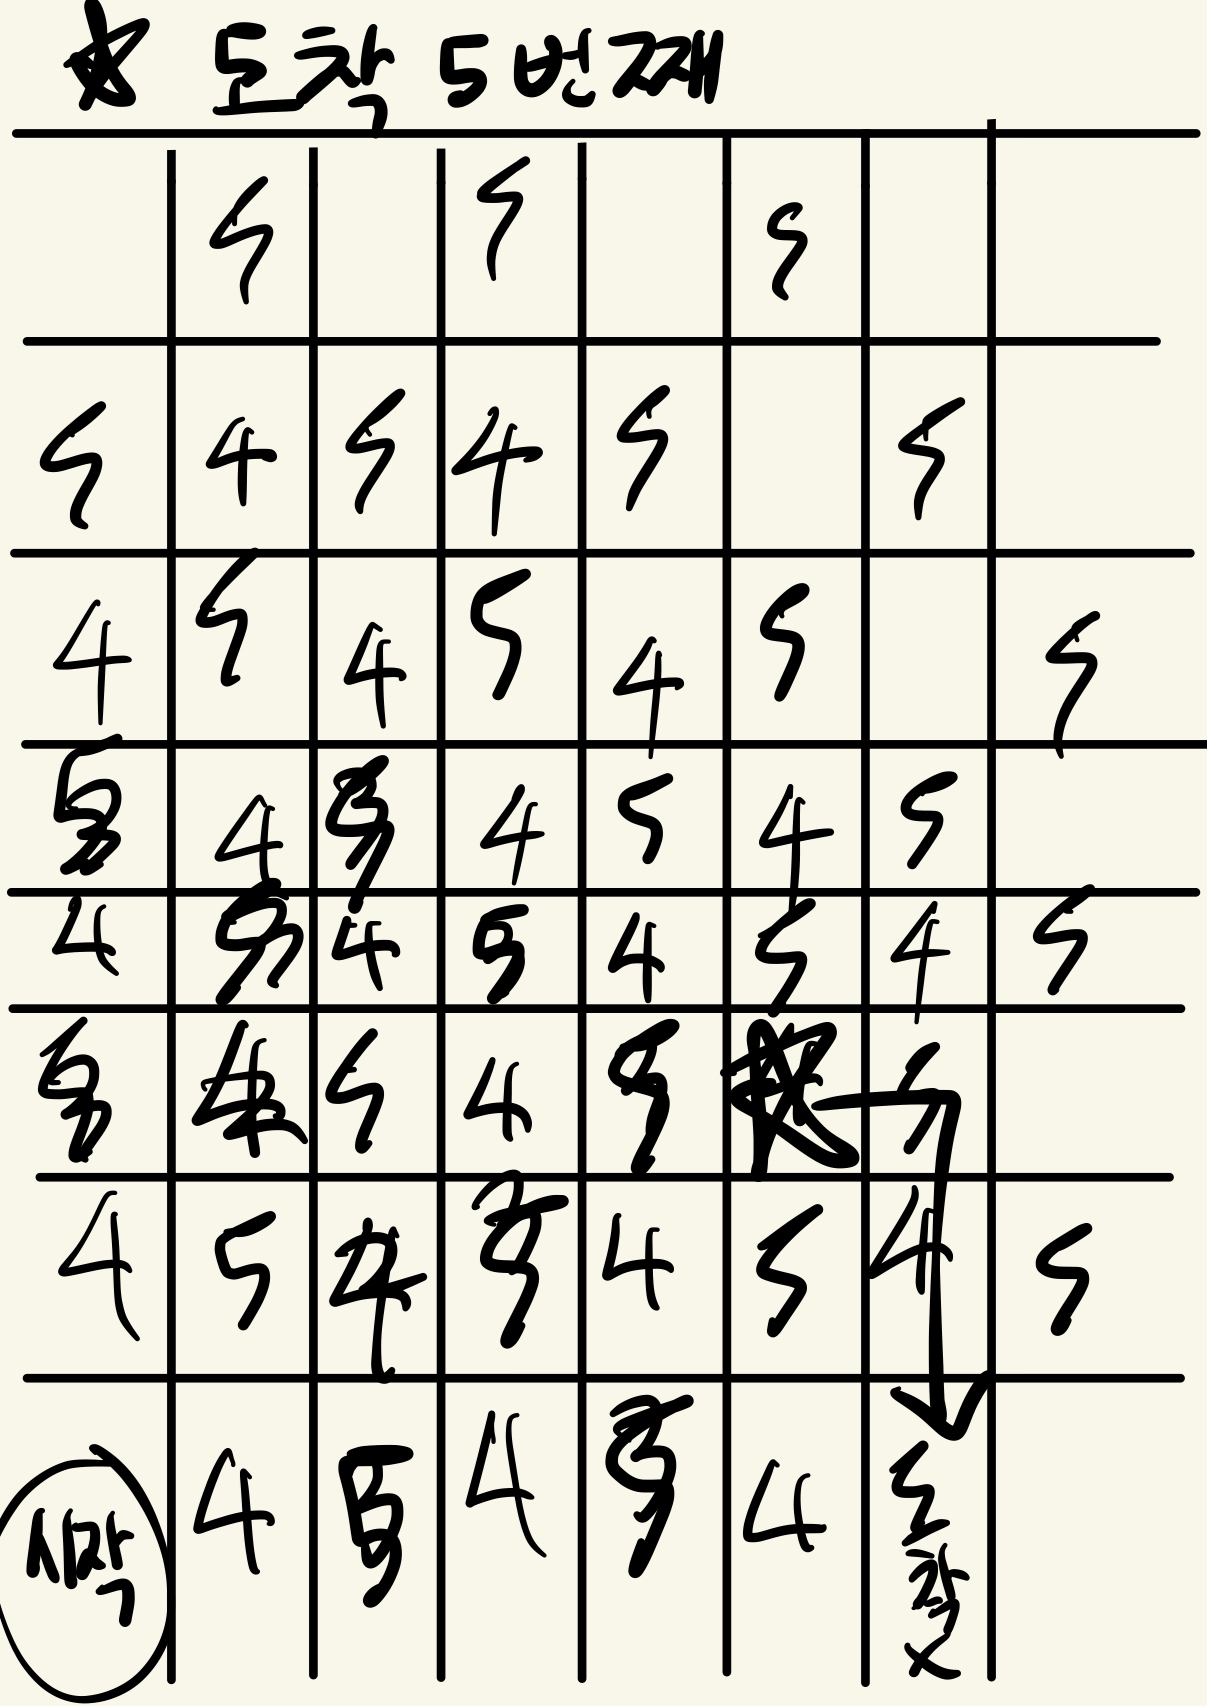 ☆ 도착 5번째
5 5 5
5 4 5 4 5 5
4 5 4 5 4 5 5
4 4 5 4 5
4 4 5 4 5 4 5
5 4 5
4 5 4 5 4 5
시작 4 4 4 도착 X